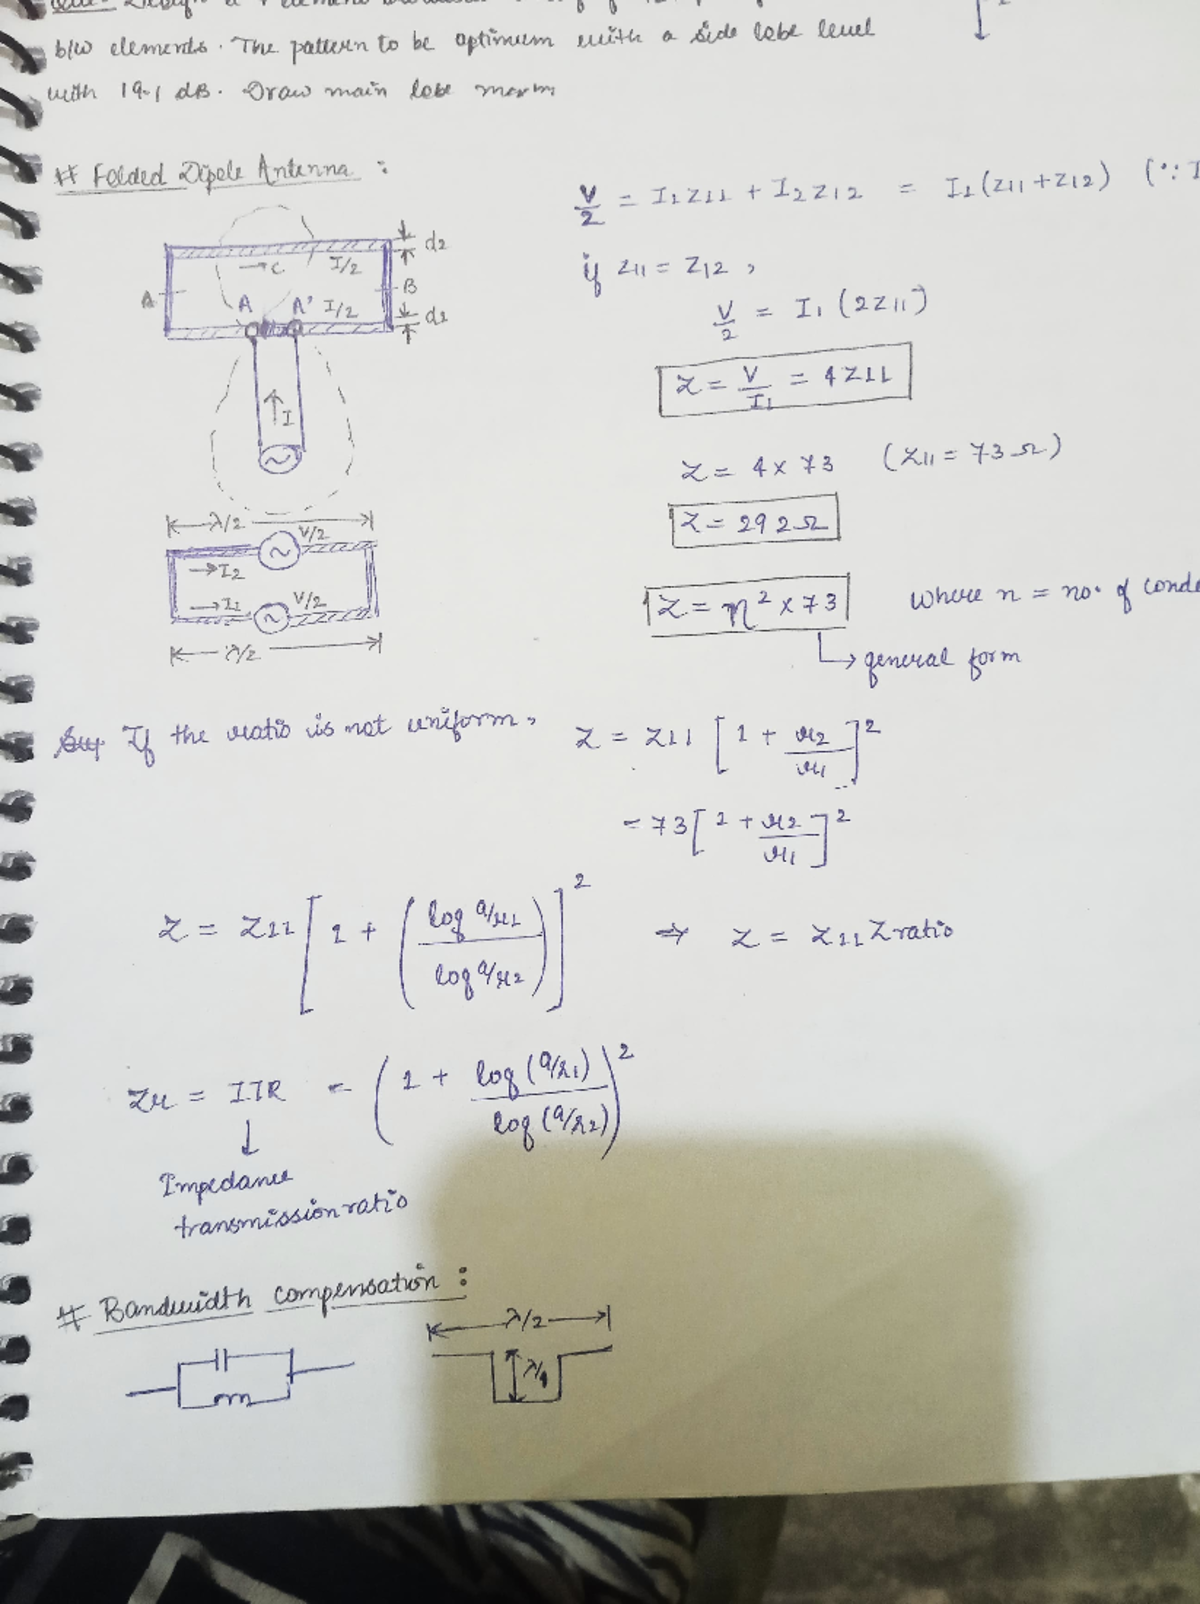 b/w elements. The pattern to be optimum with a side lobe level
with 19.1 dB. Draw main lobe
# Folded Dipole Antenna :
d2
→ C I/2
A B
A A' I/2
d1
↑ I
λ/2
V/2
→ I2
→ I1 V/2
λ/2
V/2 = I1 Z11 + I2 Z12 = I1 (Z11 + Z12) (∵ I
if Z11 = Z12 ,
V/2 = I1 (2Z11)
Z = V/I1 = 4Z11
Z = 4 × 73 (Z11 = 73 Ω)
Z = 292 Ω
Z = n² × 73 where n = no. of
→ general form
If the ratio is not uniform, Z = Z11 [1 + r2/r1]²
= 73 [1 + r2/r1]²
Z = Z11 [1 + (log a/r1 / log a/r2)]² ⇒ Z = Z11 Zratio
Zr = ITR = (1 + log (a/r1) / log (a/r2))²
↓
Impedance
transmission ratio
# Bandwidth compensation :
λ/2
λ/4